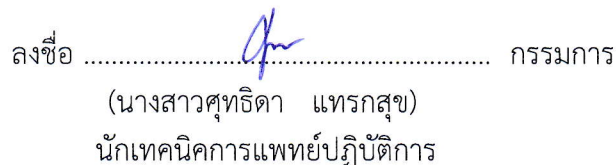 ลงชื่อ ................................................ กรรมการ
(นางสาวศุทธิดา แทรกสุข)
นักเทคนิคการแพทย์ปฏิบัติการ